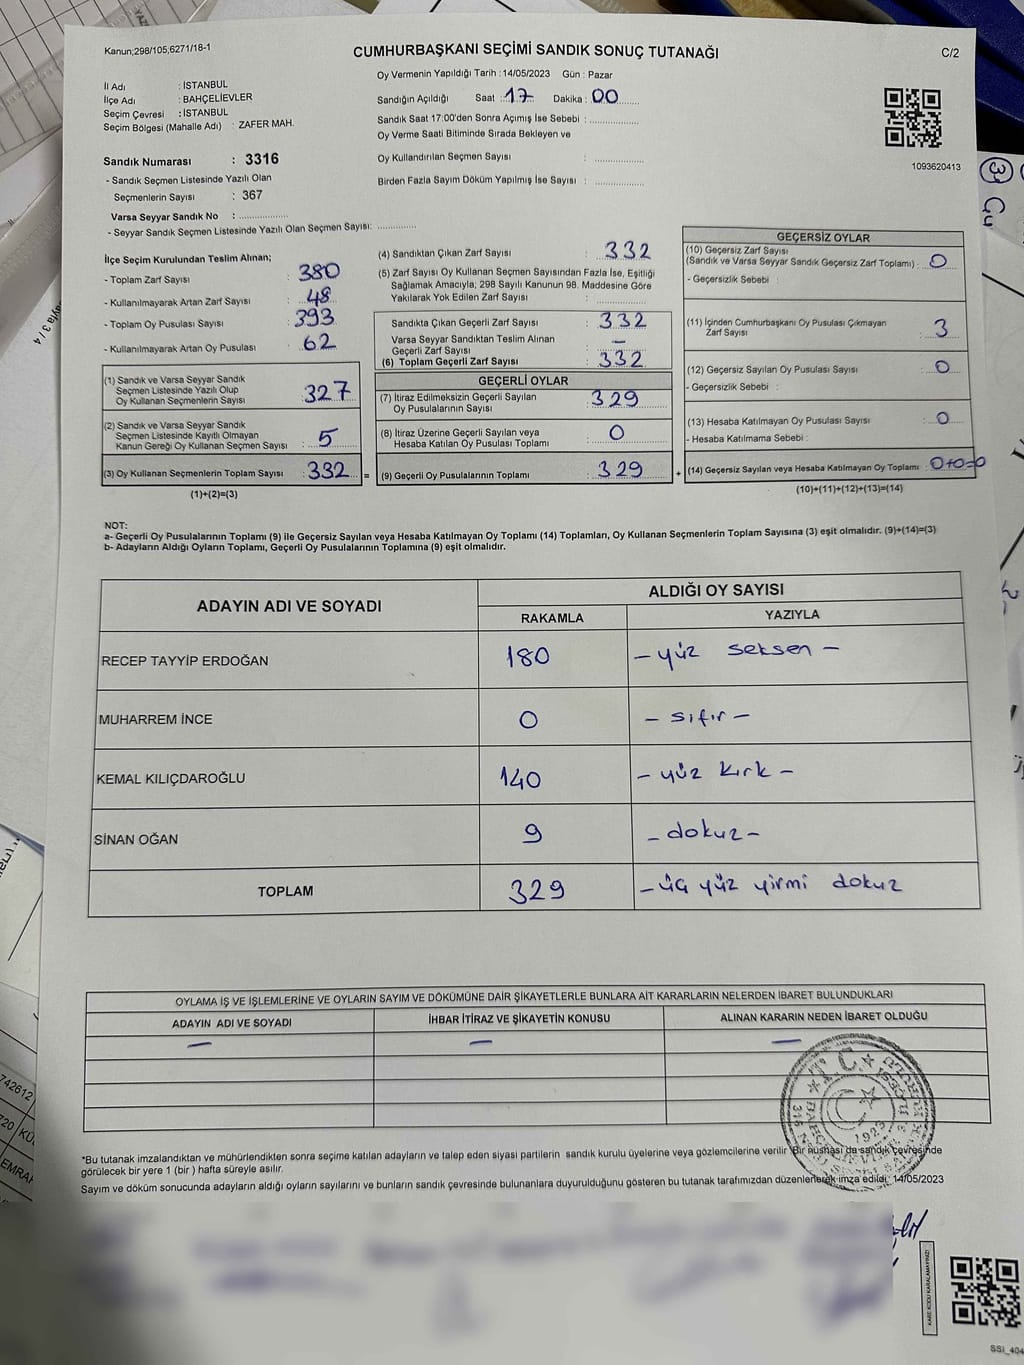 Kanun;298/105;6271/18-1
CUMHURBAŞKANI SEÇİMİ SANDIK SONUÇ TUTANAĞI
C/2
Oy Vermenin Yapıldığı Tarih : 14/05/2023 Gün : Pazar
İl Adı : İSTANBUL
İlçe Adı : BAHÇELİEVLER
Seçim Çevresi : İSTANBUL
Seçim Bölgesi (Mahalle Adı) : ZAFER MAH.
Sandık Numarası : 3316
- Sandık Seçmen Listesinde Yazılı Olan
Seçmenlerin Sayısı : 367
Varsa Seyyar Sandık No : ................
- Seyyar Sandık Seçmen Listesinde Yazılı Olan Seçmen Sayısı: .............
Sandığın Açıldığı Saat : 17 Dakika : 00
Sandık Saat 17:00'den Sonra Açımış İse Sebebi : ................
Oy Verme Saati Bitiminde Sırada Bekleyen ve
Oy Kullandırılan Seçmen Sayısı : ................
Birden Fazla Sayım Döküm Yapılmış İse Sayısı : ................
1093620413
İlçe Seçim Kurulundan Teslim Alınan;
- Toplam Zarf Sayısı : 380
- Kullanılmayarak Artan Zarf Sayısı : 48
- Toplam Oy Pusulası Sayısı : 393
- Kullanılmayarak Artan Oy Pusulası : 62
(1) Sandık ve Varsa Seyyar Sandık
Seçmen Listesinde Yazılı Olup
Oy Kullanan Seçmenlerin Sayısı : 327
(2) Sandık ve Varsa Seyyar Sandık
Seçmen Listesinde Kayıtlı Olmayan
Kanun Gereği Oy Kullanan Seçmen Sayısı : 5
(3) Oy Kullanan Seçmenlerin Toplam Sayısı : 332 =
(1)+(2)=(3)
(4) Sandıktan Çıkan Zarf Sayısı : 332
(5) Zarf Sayısı Oy Kullanan Seçmen Sayısından Fazla İse, Eşitliği
Sağlamak Amacıyla, 298 Sayılı Kanunun 98. Maddesine Göre
Yakılarak Yok Edilen Zarf Sayısı : ................
Sandıkta Çıkan Geçerli Zarf Sayısı : 332
Varsa Seyyar Sandıktan Teslim Alınan
Geçerli Zarf Sayısı : —
(6) Toplam Geçerli Zarf Sayısı : 332
GEÇERLİ OYLAR
(7) İtiraz Edilmeksizin Geçerli Sayılan
Oy Pusulalarının Sayısı : 329
(8) İtiraz Üzerine Geçerli Sayılan veya
Hesaba Katılan Oy Pusulası Toplamı : 0
(9) Geçerli Oy Pusulalarının Toplamı : 329 +
GEÇERSİZ OYLAR
(10) Geçersiz Zarf Sayısı
(Sandık ve Varsa Seyyar Sandık Geçersiz Zarf Toplamı) : 0
- Geçersizlik Sebebi :
(11) İçinden Cumhurbaşkanı Oy Pusulası Çıkmayan
Zarf Sayısı : 3
(12) Geçersiz Sayılan Oy Pusulası Sayısı : 0
- Geçersizlik Sebebi :
(13) Hesaba Katılmayan Oy Pusulası Sayısı : 0
- Hesaba Katılmama Sebebi :
(14) Geçersiz Sayılan veya Hesaba Katılmayan Oy Toplamı : 0+0=0
(10)+(11)+(12)+(13)=(14)
NOT:
a- Geçerli Oy Pusulalarının Toplamı (9) ile Geçersiz Sayılan veya Hesaba Katılmayan Oy Toplamı (14) Toplamları, Oy Kullanan Seçmenlerin Toplam Sayısına (3) eşit olmalıdır. (9)+(14)=(3)
b- Adayların Aldığı Oyların Toplamı, Geçerli Oy Pusulalarının Toplamına (9) eşit olmalıdır.
ADAYIN ADI VE SOYADI
ALDIĞI OY SAYISI
RAKAMLA YAZIYLA
RECEP TAYYİP ERDOĞAN 180 – yüz seksen –
MUHARREM İNCE 0 – sıfır –
KEMAL KILIÇDAROĞLU 140 – yüz kırk –
SİNAN OĞAN 9 – dokuz –
TOPLAM 329 – üç yüz yirmi dokuz
OYLAMA İŞ VE İŞLEMLERİNE VE OYLARIN SAYIM VE DÖKÜMÜNE DAİR ŞİKAYETLERLE BUNLARA AİT KARARLARIN NELERDEN İBARET BULUNDUKLARI
ADAYIN ADI VE SOYADI İHBAR İTİRAZ VE ŞİKAYETİN KONUSU ALINAN KARARIN NEDEN İBARET OLDUĞU
— — —
T.C.
1923
*Bu tutanak imzalandıktan ve mühürlendikten sonra seçime katılan adayların ve talep eden siyasi partilerin sandık kurulu üyelerine veya gözlemcilerine verilir. Bir nüshası da sandık çevresinde
görülecek bir yere 1 (bir ) hafta süreyle asılır.
Sayım ve döküm sonucunda adayların aldığı oyların sayılarını ve bunların sandık çevresinde bulunanlara duyurulduğunu gösteren bu tutanak tarafımızdan düzenlenerek imza edildi. 14/05/2023
KARE KODU KARALAMAYINIZ!
SSİ_404
ayfa 3 / 4
742612